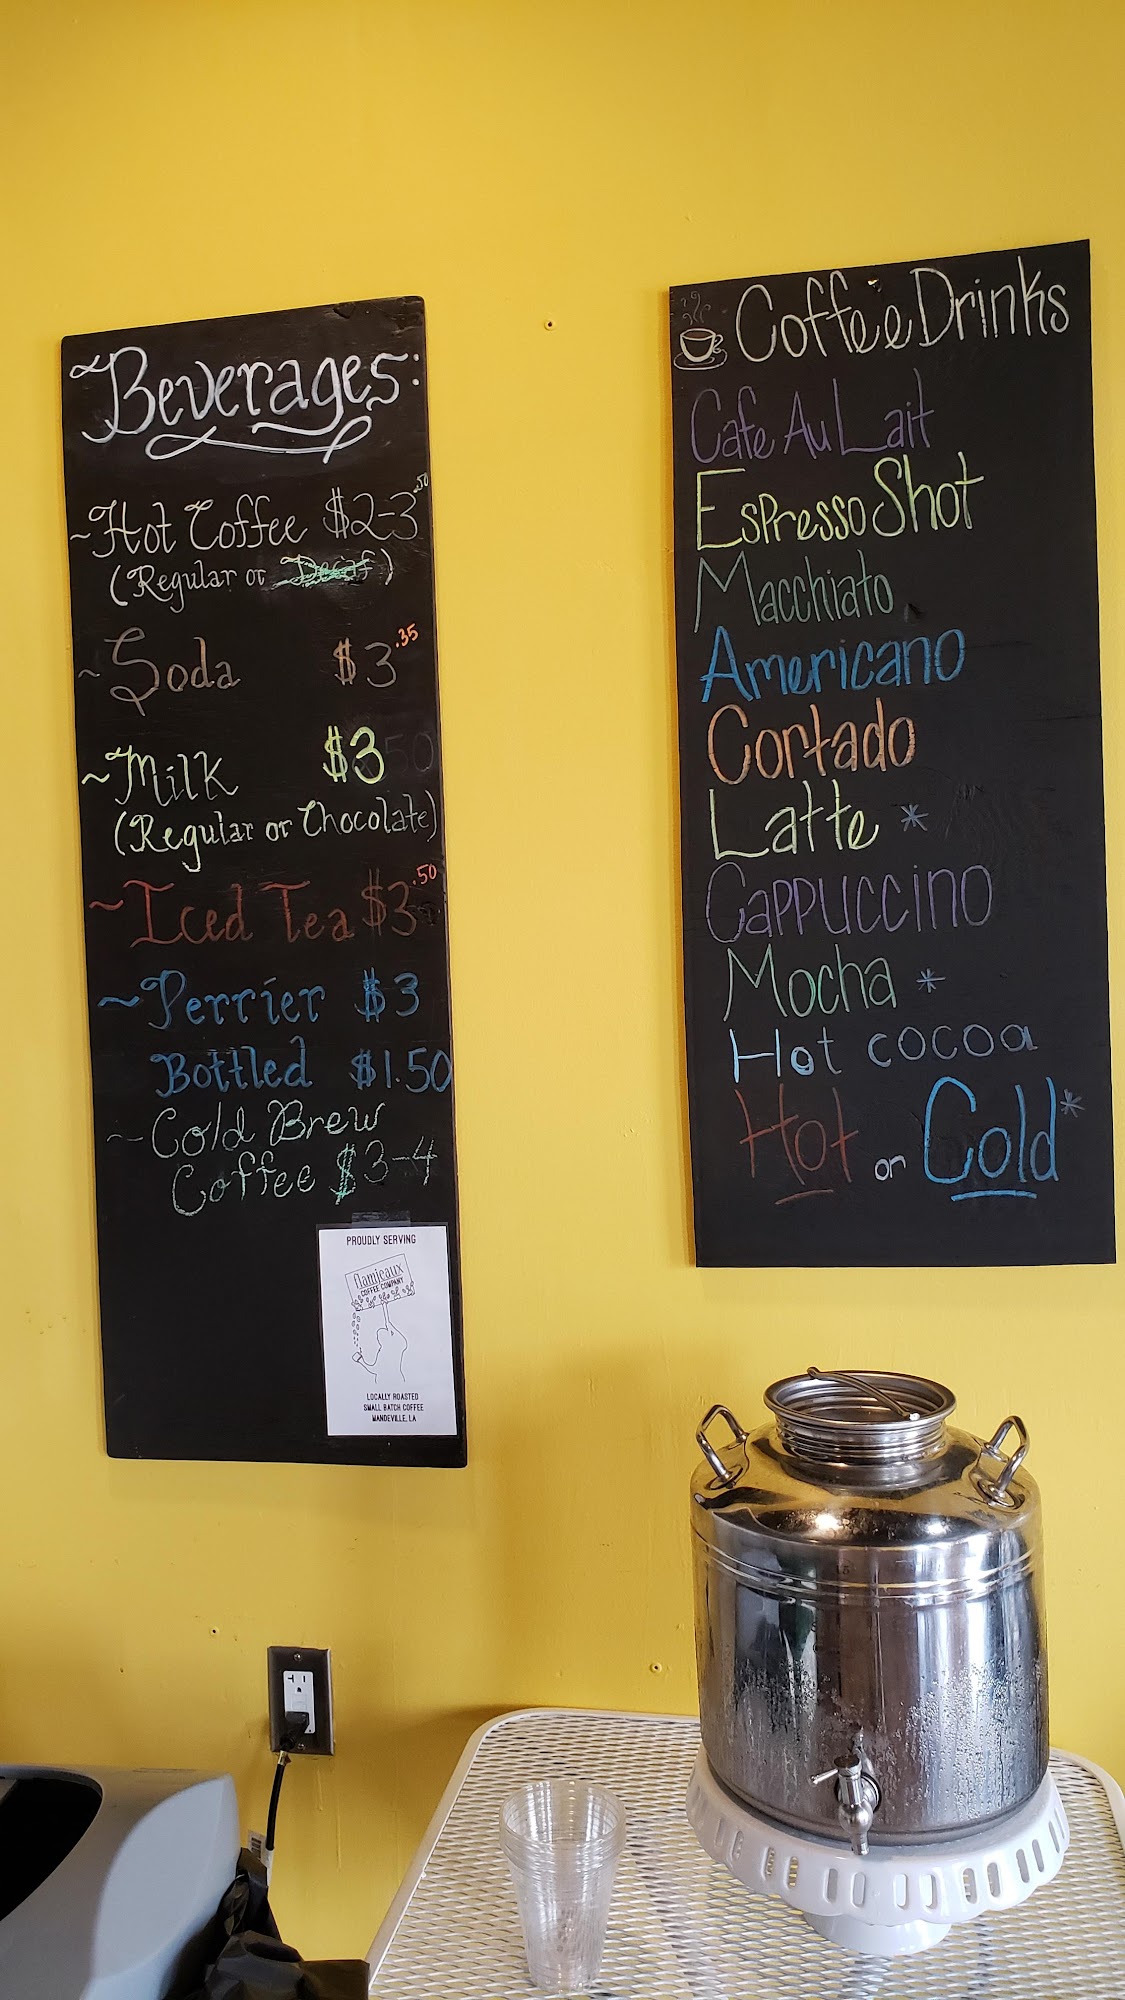 Beverages:
~Hot Coffee $2-3.50
(Regular or Decaf)
~Soda $3.35
~Milk $3
(Regular or Chocolate)
~Iced Tea $3.50
~Perrier $3
Bottled $1.50
~Cold Brew
Coffee $3-4
PROUDLY SERVING
flamjeaux
COFFEE COMPANY
LOCALLY ROASTED
SMALL BATCH COFFEE
MANDEVILLE, LA
Coffee Drinks
Cafe Au Lait
Espresso Shot
Macchiato
Americano
Cortado
Latte *
Cappuccino
Mocha *
Hot cocoa
Hot or Cold*